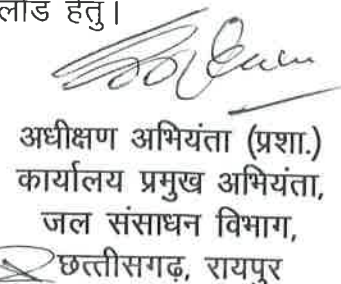 लोड हेतु।
अधीक्षण अभियंता (प्रशा.)
कार्यालय प्रमुख अभियंता,
जल संसाधन विभाग,
छत्तीसगढ़, रायपुर